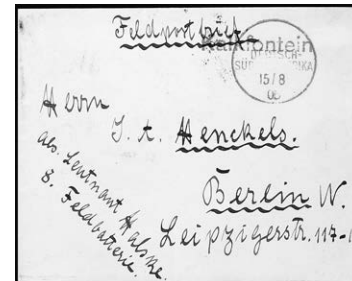 Feldpostbrief
Kalkfontein
DEUTSCH-
SÜDWESTAFRIKA
15/8
06
Herrn
J. A. Henckels.
Berlin W.
Leipzigerstr. 117-
Abs. Leutnant Halske.
8. Feldbatterie.